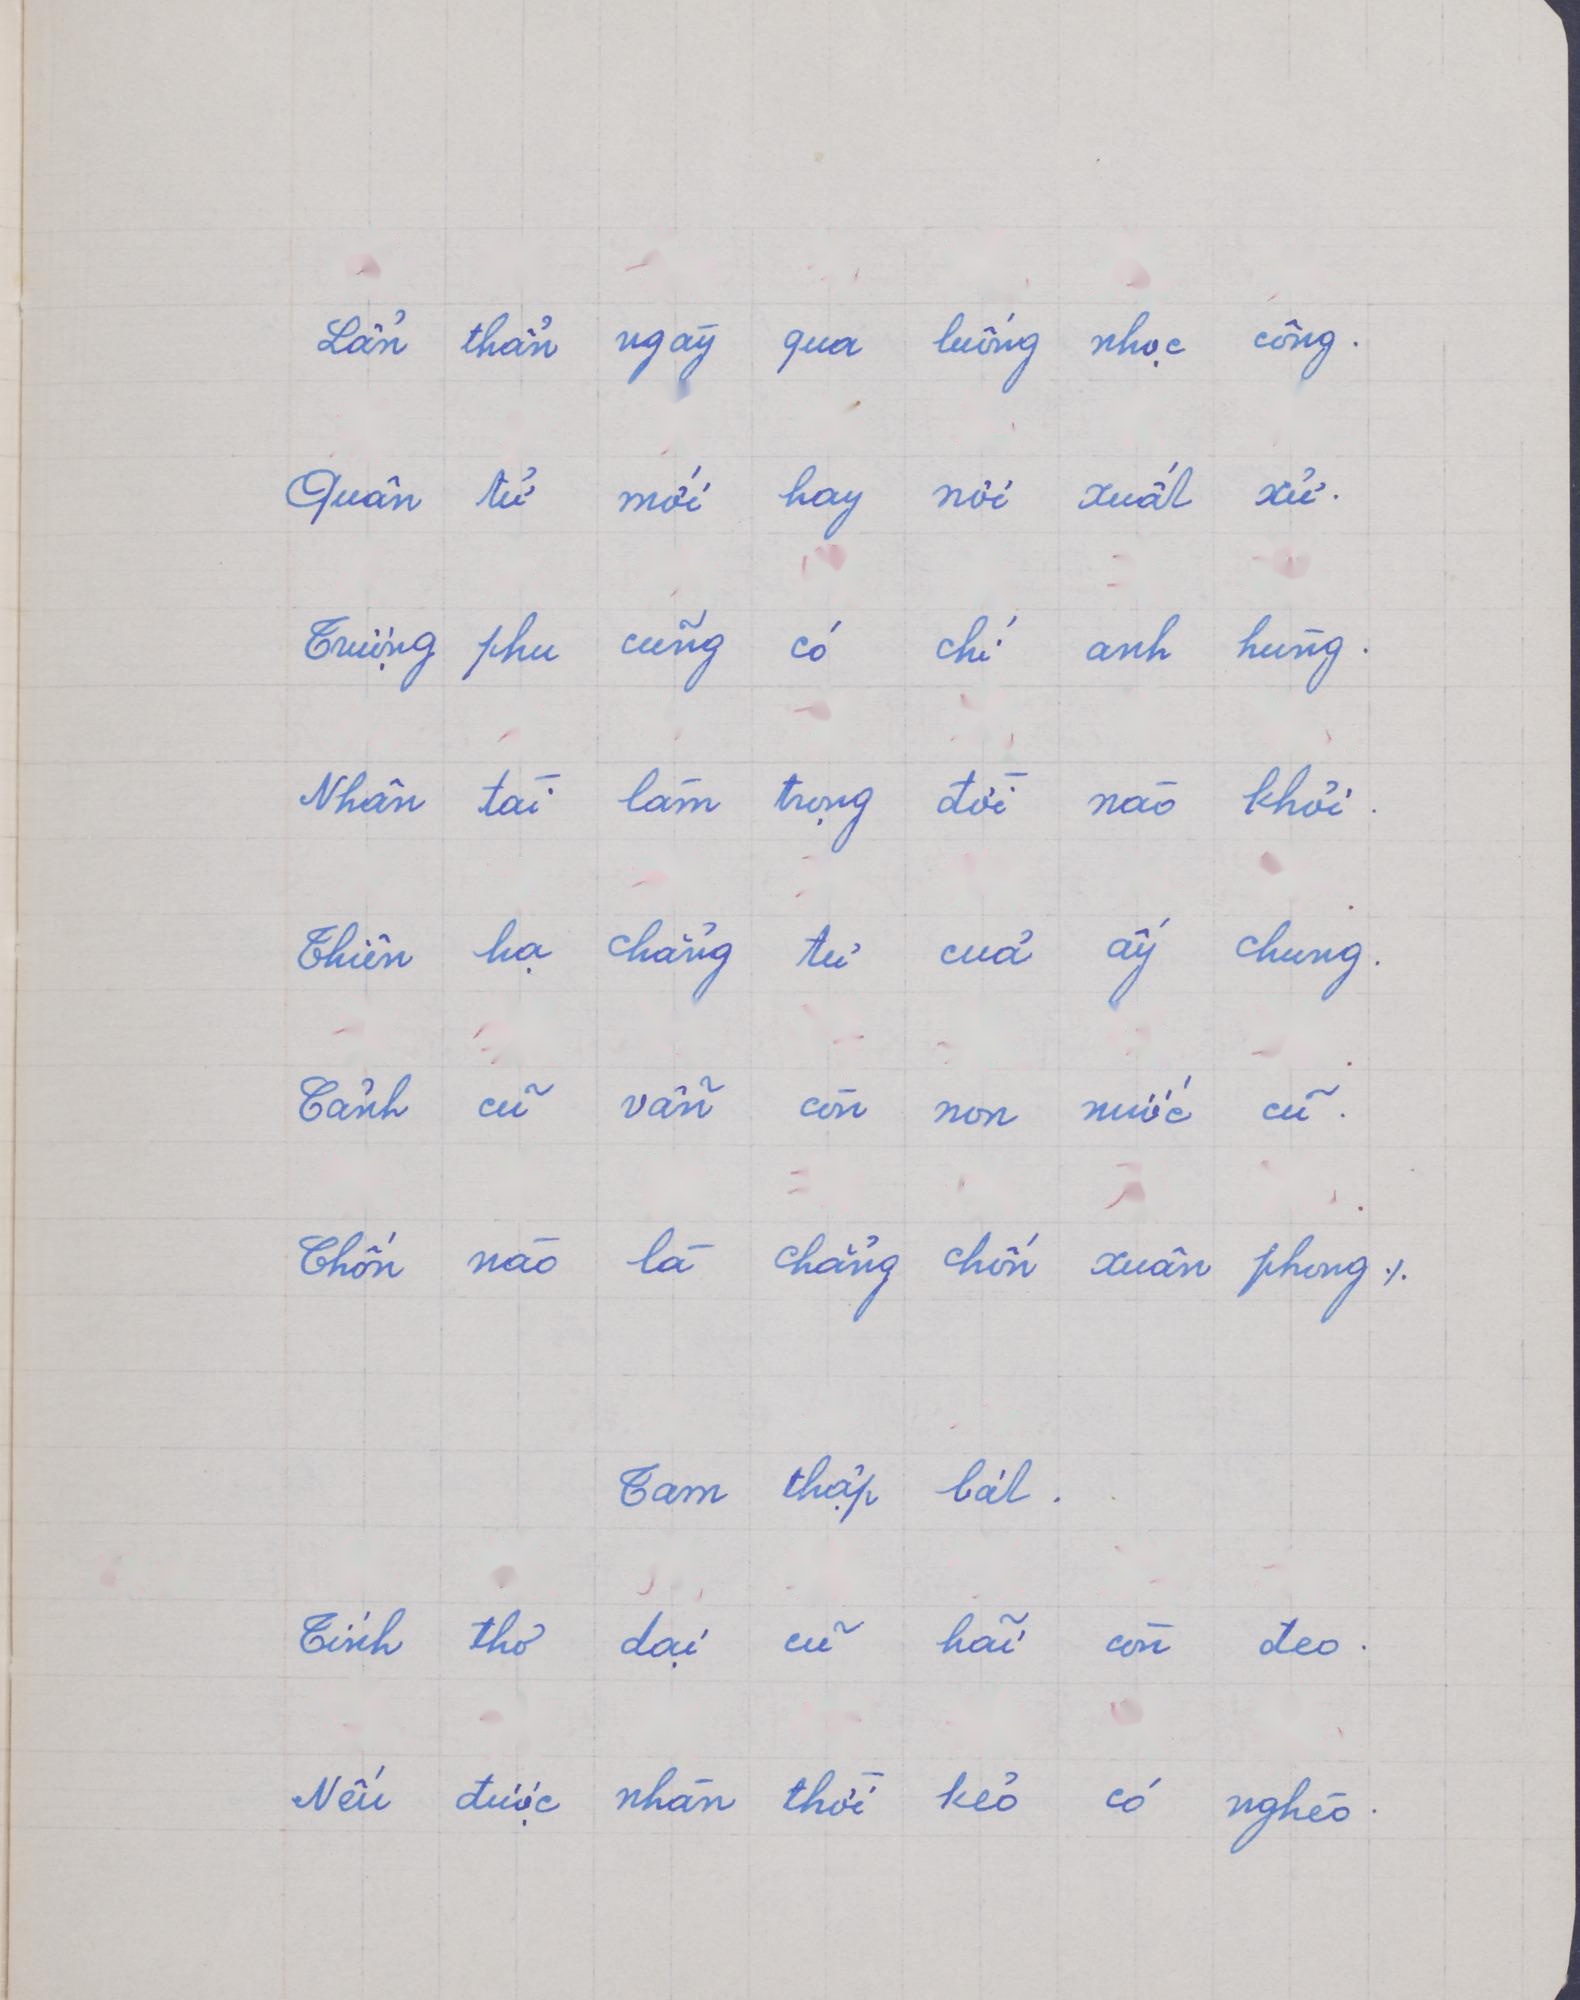 Lẩn thẩn ngày qua luống nhọc công.
Quân tử mới hay nơi xuất xử.
Trượng phu cũng có chí anh hùng.
Nhân tài làm trọng đời nào khởi.
Thiên hạ chẳng tư của ấy chung.
Cảnh cũ vẫn còn non nước cũ.
Chốn nào là chẳng chốn xuân phong ./.
Tam thập bát.
Tính thơ dại cũ hãi còn đeo.
Nếu được nhàn thời kẻo có nghèo.